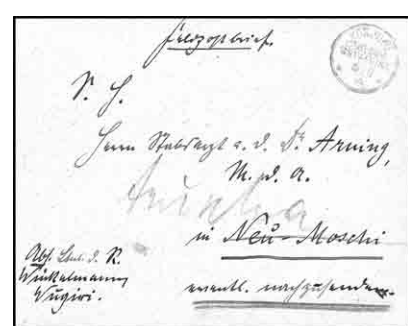 Feldpostbrief.
S. H.
Herrn Stabsarzt a. D. Dr. Arning,
M. d. A.
in Neu-Moschi
eventl. nachzusenden.
Abs. Leut. d. R.
Winkelmann
Wugiri.